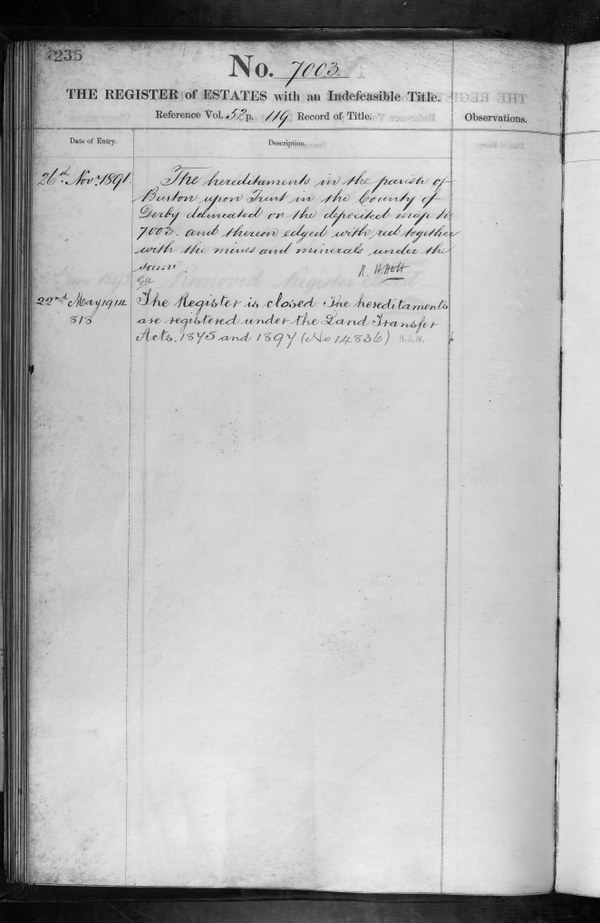 235
No. 7003.
THE REGISTER of ESTATES with an Indefeasible Title.
Reference Vol. 52 p. 119 Record of Title.
Observations.
Date of Entry.
Description.
26th Novr. 1891.
The hereditaments in the parish of
Burton upon Trent in the County of
Derby delineated on the deposited map No
7003. and thereon edged with red together
with the mines and minerals under the
same.
R. H. Holt
22nd May 1914
813
The Register is closed The hereditaments
are registered under the Land Transfer
Acts, 1875 and 1897 (No 14836) H.S.W.